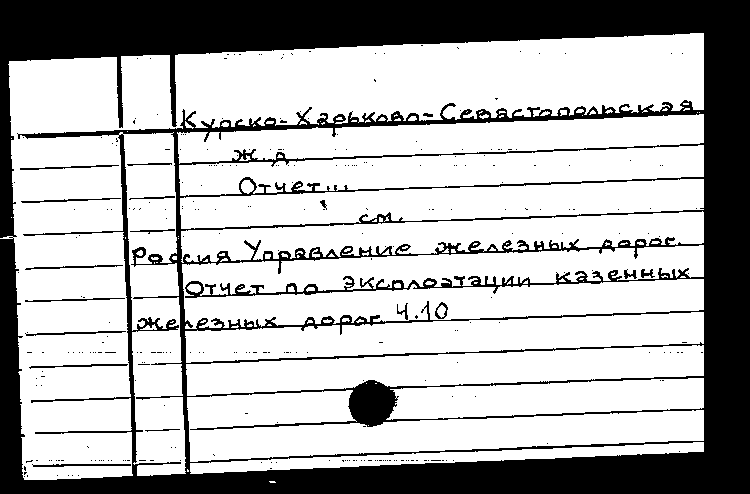 Курско-Харьково-Севастопольская
ж.д.
Отчет...
см.
Россия Управление железных дорог.
Отчет по эксплоатации казенных
железных дорог. Ч.10